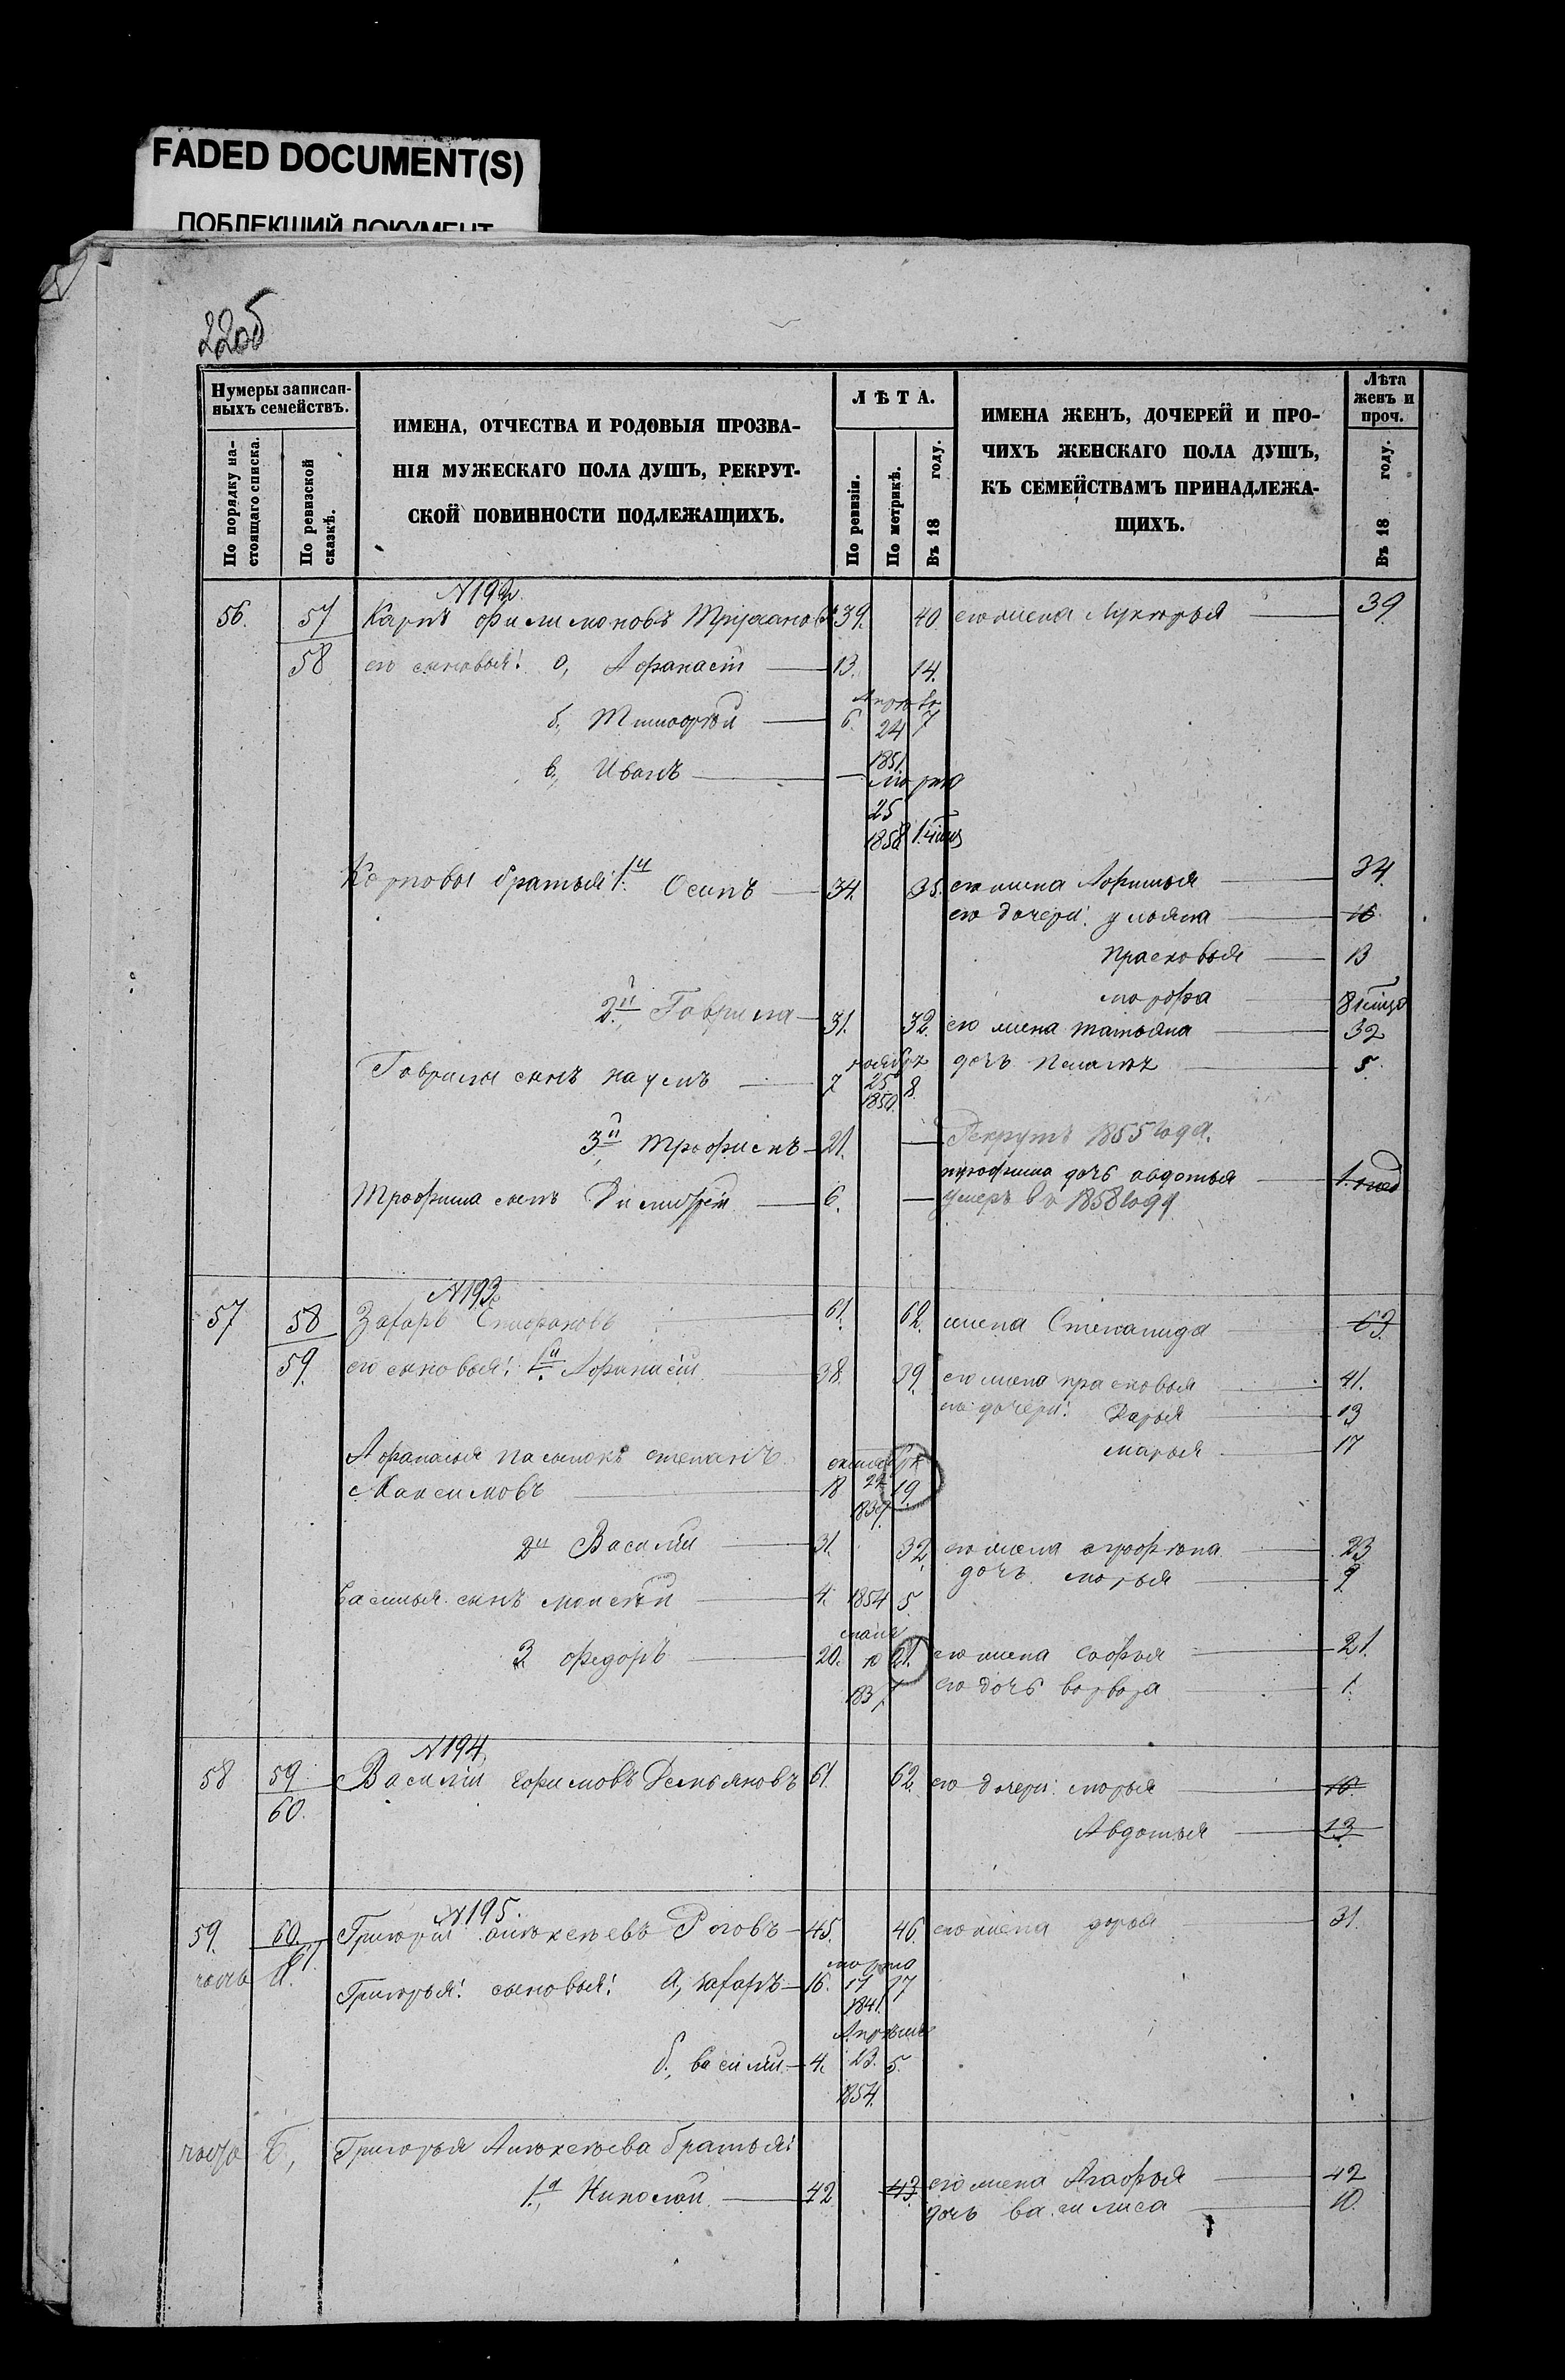 FADED DOCUMENT(S)
ПОБЛЕКШИЙ ДОКУМЕНТ
22об
Нумеры записан-
ныхъ семействъ.
По порядку на-
стоящаго списка.
По ревизской
сказкѣ.
ИМЕНА, ОТЧЕСТВА И РОДОВЫЯ ПРОЗВА-
НІЯ МУЖЕСКАГО ПОЛА ДУШЪ, РЕКРУТ-
СКОЙ ПОВИННОСТИ ПОДЛЕЖАЩИХЪ.
ЛѢТА.
По ревизіи.
По метрикѣ.
Въ 18 году.
ИМЕНА ЖЕНЪ, ДОЧЕРЕЙ И ПРО-
ЧИХЪ ЖЕНСКАГО ПОЛА ДУШЪ,
КЪ СЕМЕЙСТВАМЪ ПРИНАДЛЕЖА-
ЩИХЪ.
Лѣта
женъ и
проч.
Въ 18 году.
№192
56. 57 Карпъ Филимоновъ 39. 40. его жена Лукерья 39
58 его сыновья: а, Афанасій 13. 14.
б, Тимофѣй 6. 24 7
1851
в, Иванъ — марта
25
1858
Карповы братья: 1й Осипъ 34. 35. его жена Афимья 34.
его дочери: ульяна 16
Прасковья 13
марфа
2й Гаврила 31. 32. его жена татьяна 32
Гаврилы сынъ наумъ 7 ноября 25 1850 8. дочь 5.
3й трофимъ 21. — Рекрутъ 1855 года.
трофима дочь авдотья 1. год
Трофима сынъ Дмитрей 6. — умеръ въ 1858 году
№193
57 58 Захаръ 61. 62. жена Степанида 63.
59. его сыновья: 1й Афанасій 38. 39. его жена прасковья 41.
его дочери: Дарья 13
марья 17
Афанасья пасынокъ степанъ октября
Максимовъ 18 22 19.
1839
2й Василій 31. 32. его жена агрофена 23
дочь марья 2
Василья сынъ моисей 4. 1854 5.
маія
3 федоръ 20. 10 21. его жена Софья 21.
183 его дочь варвара 1.
№194
58 59 Василій ефимовъ Демьяновъ 61. 62. его дочери: марья 16.
60.
Авдотья 13
№195.
59. 60. Григорій алексеевъ Роговъ 45. 46. его жена дарья 31.
61.
часть А. марта
Григорья: сыновья: а, захаръ 16. 17 17
1841.
Апрѣля
б, василій 4. 23. 5.
1854.
часть Б, Григорья Алексеева братья:
1й Николай 42 43 его жена Агафья 42
дочь василиса 10.